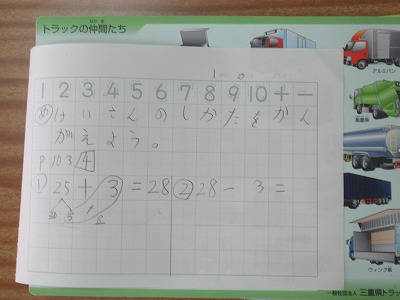 トラックの仲間たち
アルミバン
1 2 3 4 5 6 7 8 9 10 + −
め けいさんのしかたをかん
がえよう。
P103 4
① 25 + 3 = 28 ② 28 − 3 =
20 5 8
ウィング車
一般社団法人 三重県トラ